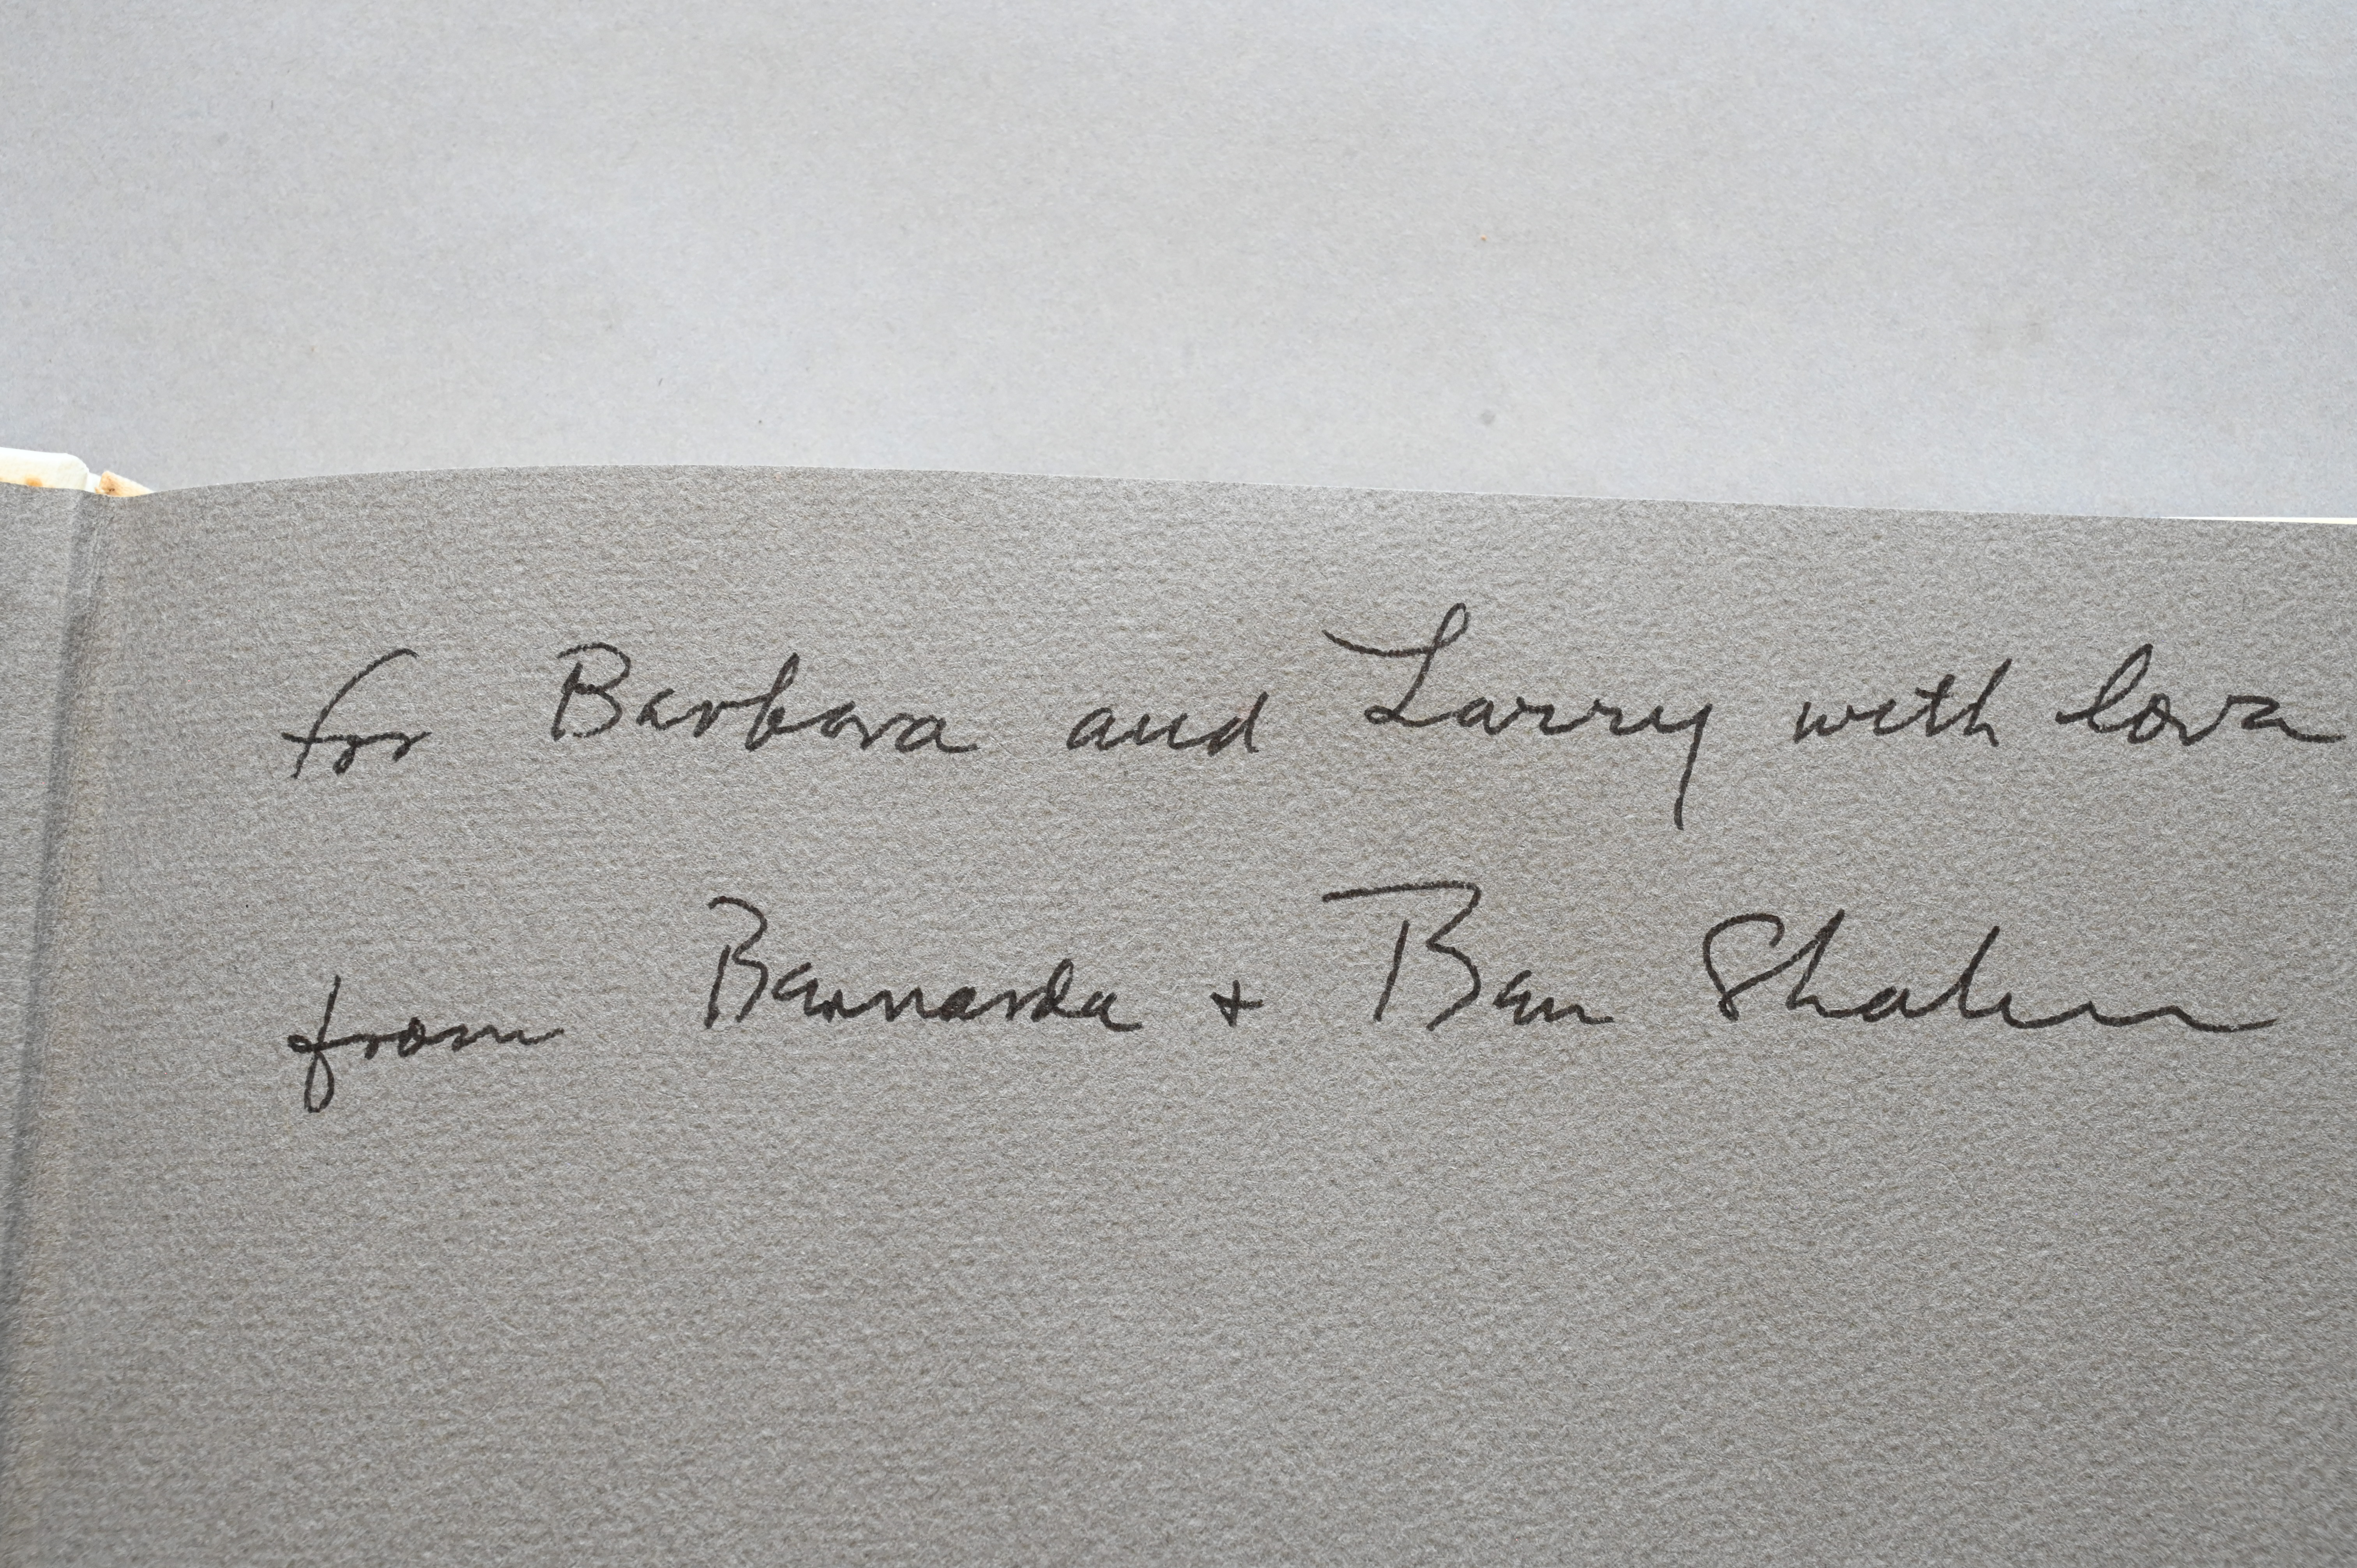 for Barbara and Larry with love
from Bernarda + Ben Shahn